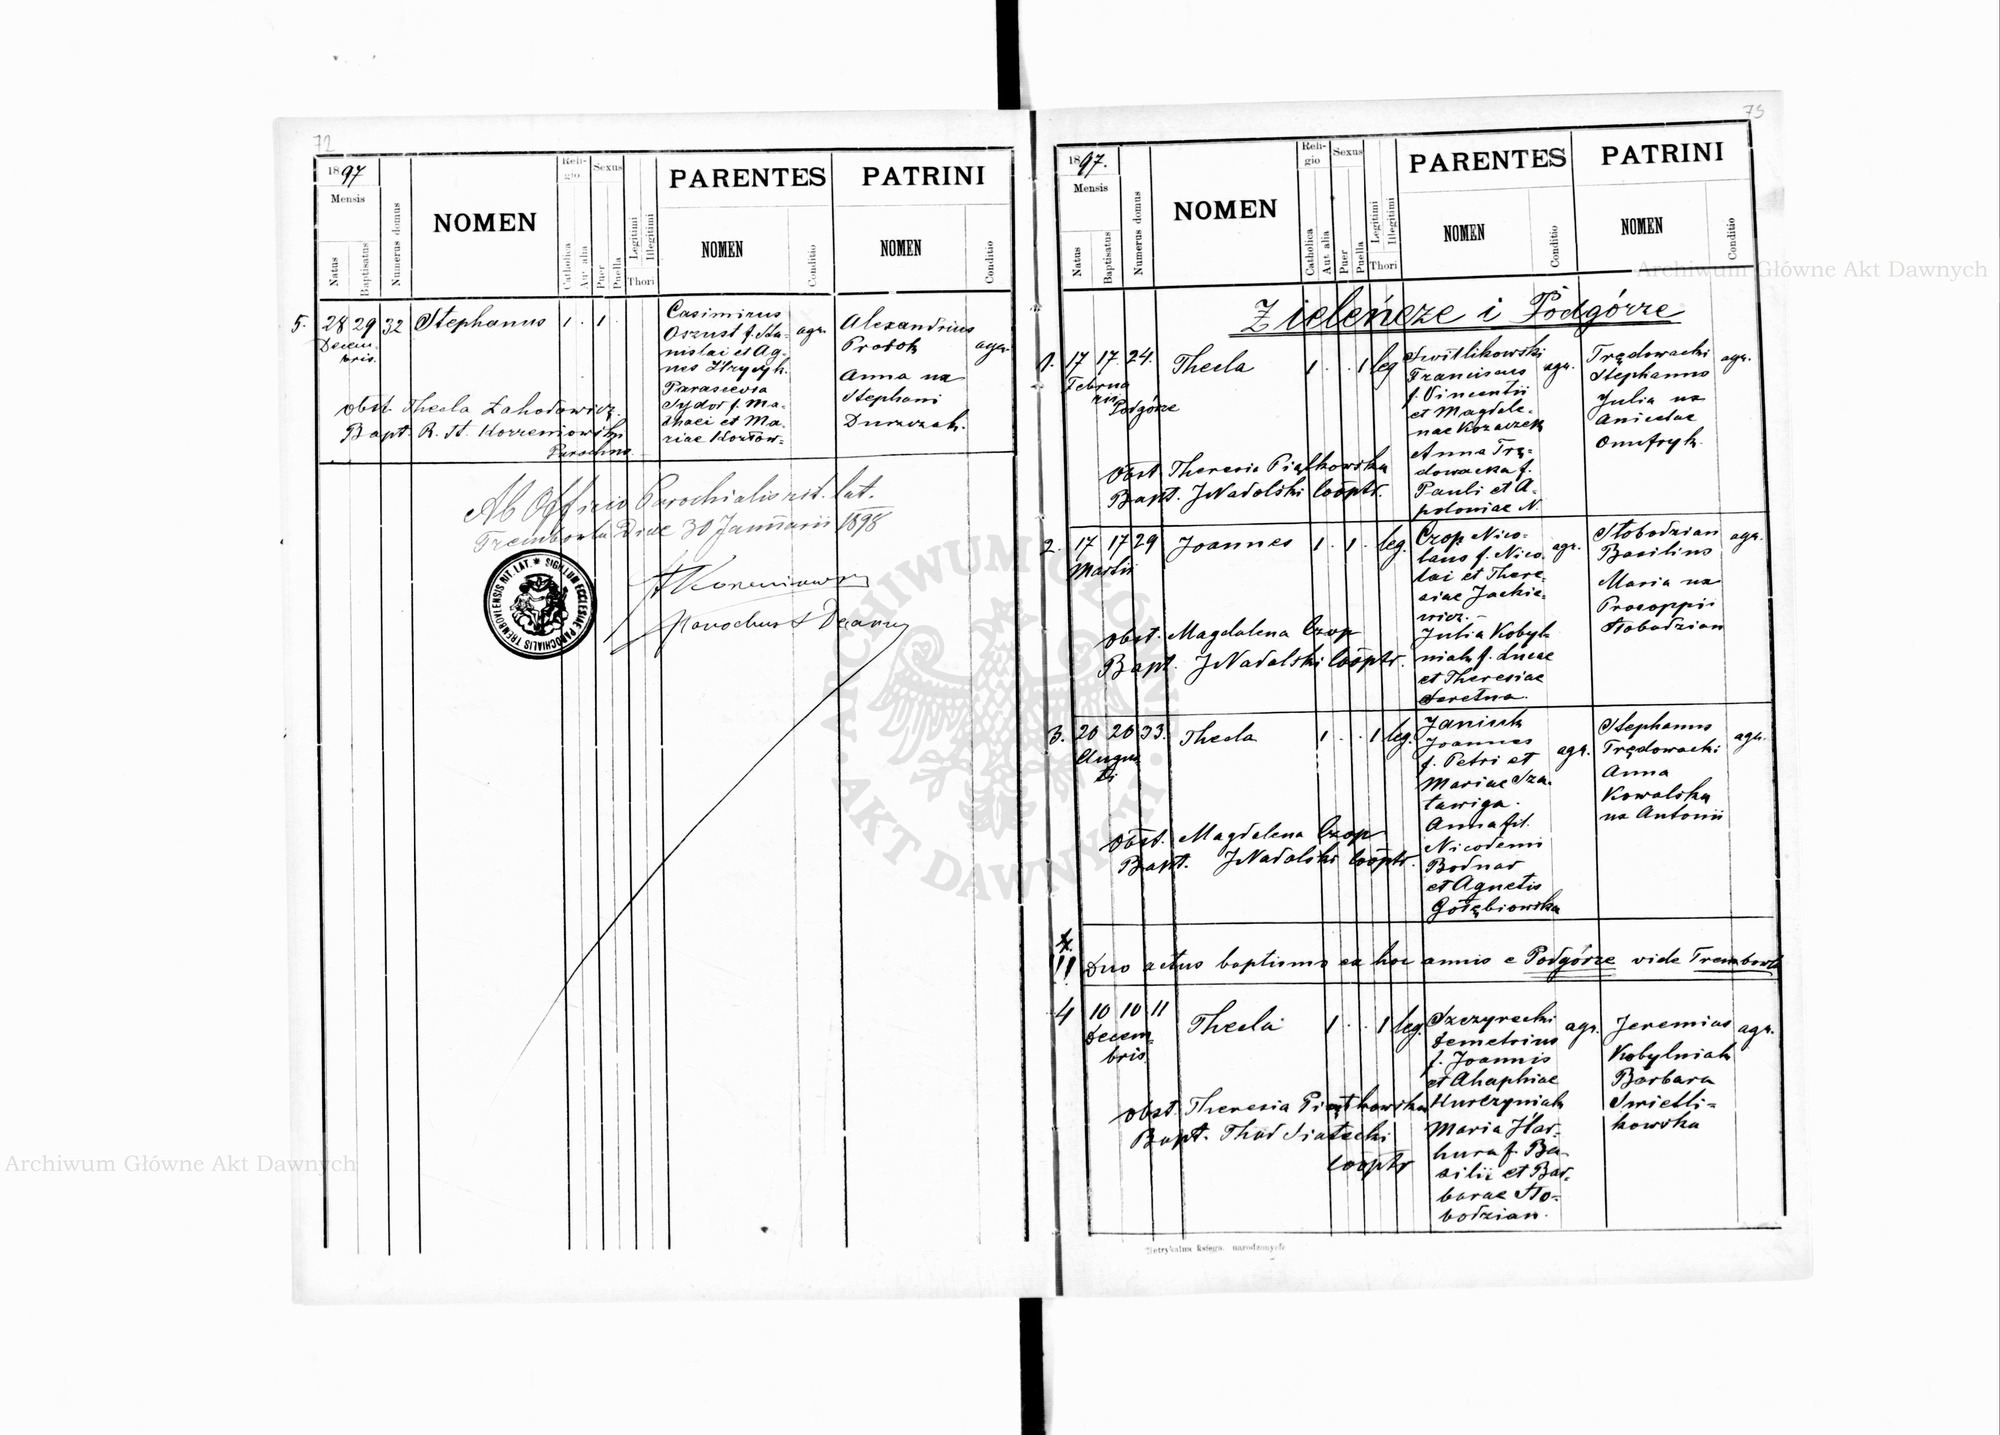 72
1897
Mensis
Natus
Baptisatus
Numerus domus
NOMEN
Religio
Catholica
Aut alia
Sexus
Puer
Puella
Legitimi
Illegitimi
Thori
PARENTES
NOMEN
Conditio
PATRINI
NOMEN
Conditio
5. 28 29 32 Stephanus 1 . 1 .
Decem-
bris.
Casimirus
Oszust f. Sta-
nislai et Ag-
nes Hrycyk.
Parascevia
Sydor f. Ma-
thaei et Ma-
riae Kozłow-
agr.
Alexandrius
Protok
Anna ux
Stephani
Durczak.
agr.
Obst. Thecla Zahodowicz.
Bapt. R. St. Korzeniowski
Parochus
Ab Officio Parochialis rit. lat.
Trembowla Diae 30 Januarii 1898
SIGILLUM ECCLESIAE PAROCHIALIS TREMBOVLENSIS RIT. LAT.
Korzeniowski
Parochus &
73
1897.
Mensis
Natus
Baptisatus
Numerus domus
NOMEN
Religio
Catholica
Aut alia
Sexus
Puer
Puella
Legitimi
Illegitimi
Thori
PARENTES
NOMEN
Conditio
PATRINI
NOMEN
Conditio
Zieleńcze i Podgórze
1. 17 17 24. Thecla 1 . . 1 leg
Februa
rii
Podgórze
Switlikowski
Franciscus
f. Vincentii
et Magdale-
nae Kozaczek
Anna Trę-
dowacka f.
Pauli et A-
poloniae N.
agr.
Trędowacki
Stephanus
Julia ux
Anicetae
Onufryk.
agr.
Obst. Theresia Piątkowska
Bapt. J Nadolski Coöptr.
2. 17 17 29 Joannes 1 . 1 . leg.
Martii
Czop Nico-
laus f. Nico-
lai et There-
siae Jackie-
wicz.
Julia Kobyl-
niak f. Lucae
et Theresiae
Seretna.
agr.
Słobodzian
Basilius
Maria ux
Procoppii
Słobodzian
agr.
Obst. Magdalena Czop
Bapt. J Nadolski Coöptr.
3. 20 20 33. Thecla 1 . . 1 leg.
Augus-
ti
Janicek
Joannes
f. Petri et
Mariae Sza-
tawiga.
Anna fil.
Nicodemi
Bodnar
et Agnetis
Gołębiowska
agr.
Stephanus
Trędowacki
Anna
Kowalska
ux Antonii
agr.
Obst. Magdalena Czop
Bapt. J Nadolski Coöptr.
!! Duo actus baptisms ex hoc annis e Podgórze vide Trembowla
4 10 10 11 Thecla 1 . . 1 leg.
Decem-
bris
Szczyrecki
Demetrius
f. Joannis
et Ahaphiae
Kurczyniak
Maria Har-
hura f. Ba-
silii et Bar-
barae Sło-
bodzian.
agr.
Jeremias
Kobylniak
Barbara
Swietli-
kowska
agr.
Obst. Theresia Piątkowska
Bapt. Thad Siatecki
Coöptr
Metrykalna księga. narodzonych
Archiwum Główne Akt Dawnych
Archiwum Główne Akt Dawnych
ARCHIWUM GŁÓWNE
AKT DAWNYCH